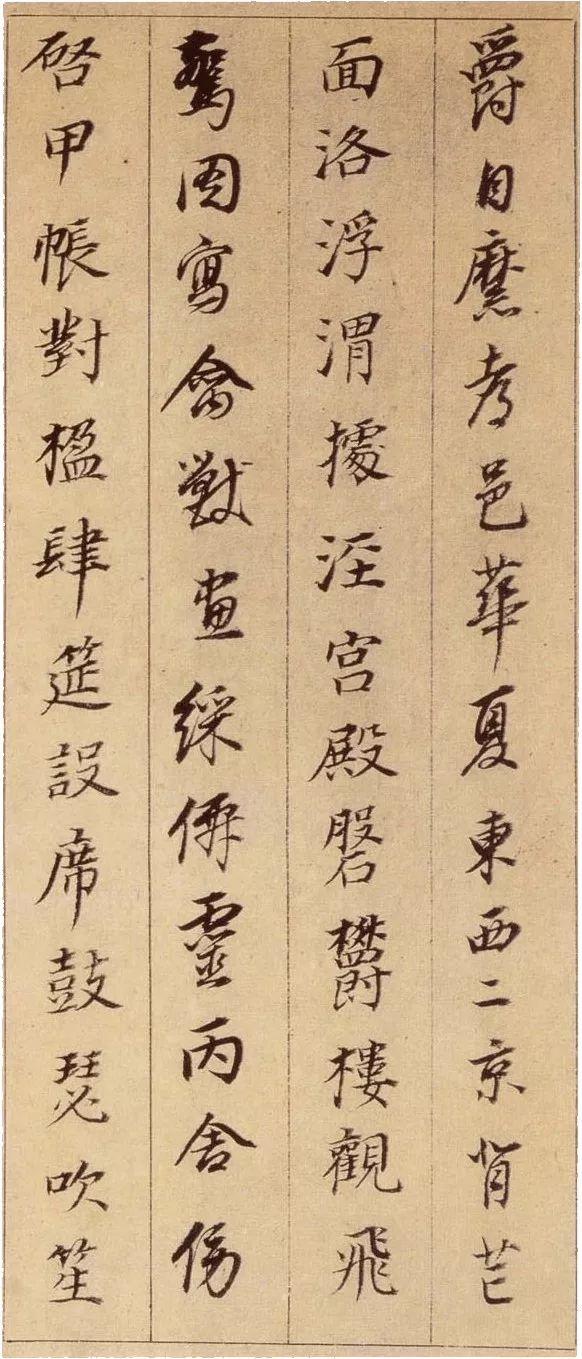 爵自縻都邑華夏東西二京背芒
面洛浮渭據涇宮殿磐鬱樓觀飛
驚圖寫禽獸畫綵僊靈丙舍傍
啓甲帳對楹肆筵設席鼓瑟吹笙